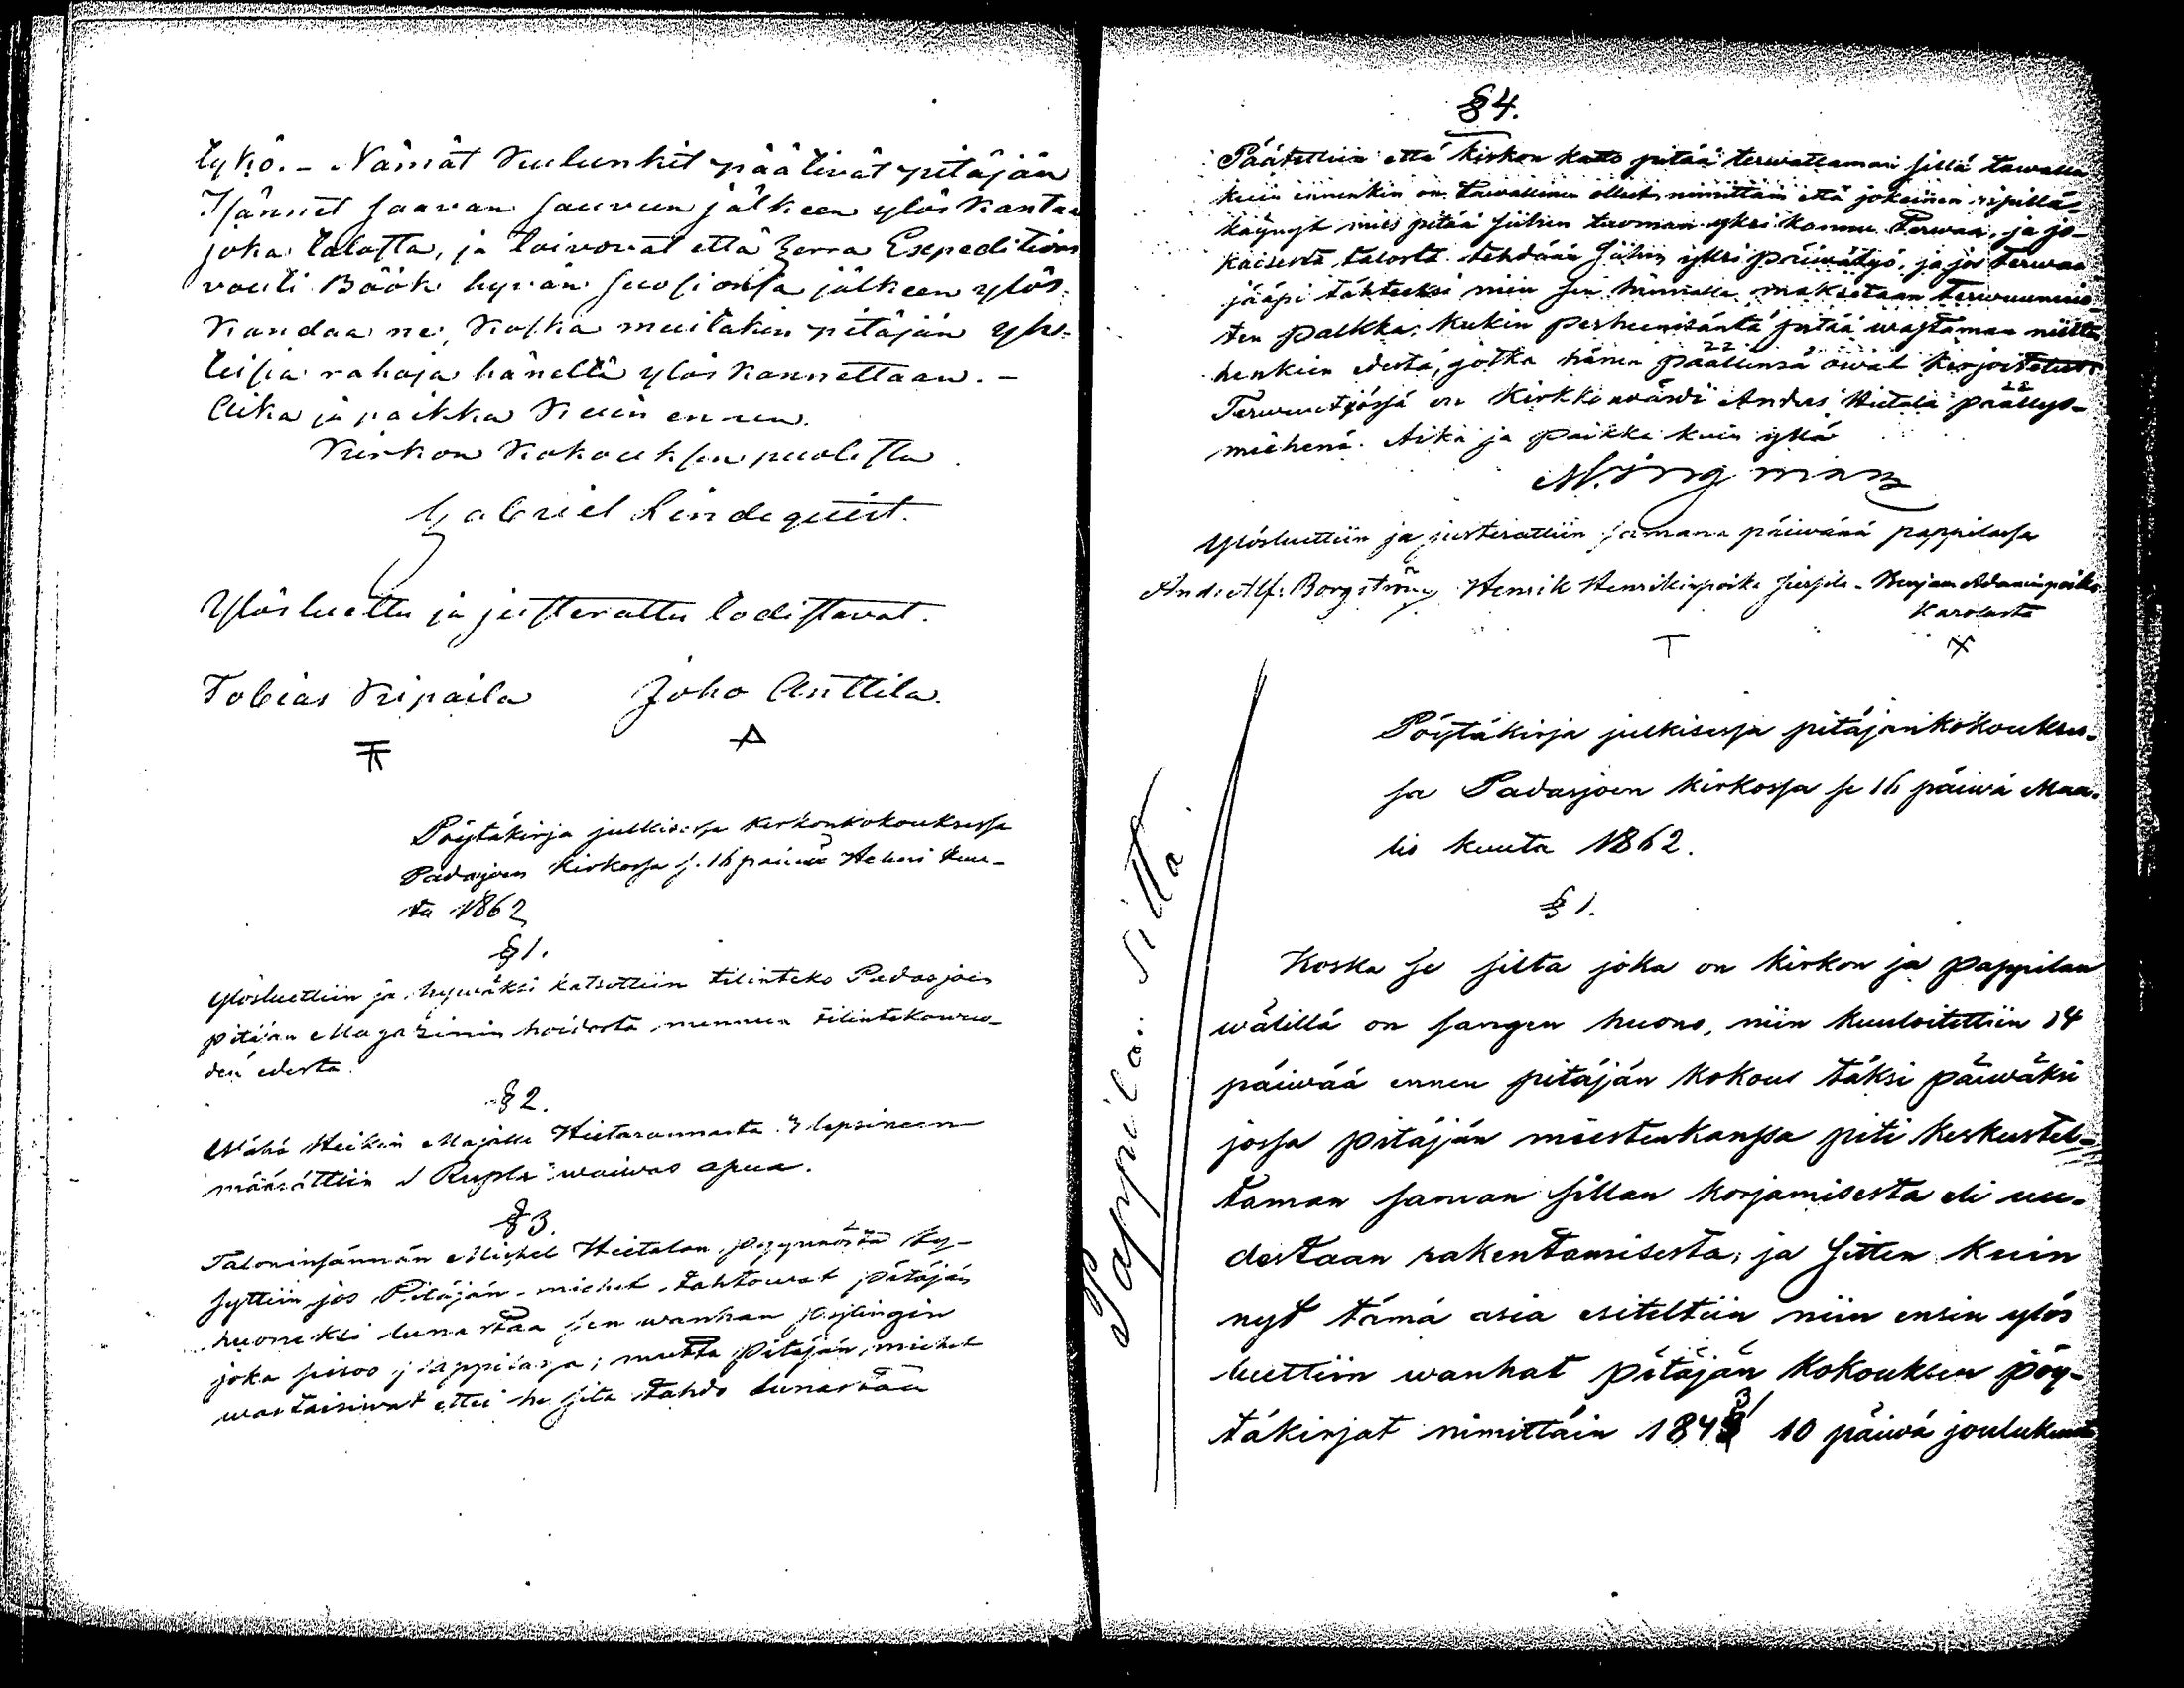 tykö. - Nämät kulunkit päätivät pitäjän
Isännet saavan sauvun jälkeen ylöskantaa
joka talosta, ja toivovat että Herra Expeditions
vouti Böök hyvän suosionsa jälkeen ylös-
kandaa ne, koska muitakin pitäjän yh-
teisiä rahoja häneltä ylöskannettaan. -
Aika ja paikka kuin ennen.
Kirkon kokouksen puolesta
Gabriel Lindequist.
Ylösluettu ja justerattu todistavat.
Tobias Kripaila Joho Anttila.
Pöytäkirja julkisessa kirkonkokouksessa
Padasjoen kirkossa s. 16 päiwä Helmi kuu-
ta 1862
§ 1.
Ylösluettiin ja hywäksi katsottiin tilinteko Padasjoen
pitäjän Magazinin hoidosta mennen tilintekowuo-
den edestä.
§ 2.
Wähä Heikin Majalle Hietarannasta 3 lapsineen
määrättiin 1 Rupla waiwas apua.
§ 3.
Taloninsännän Michel Hietalan pyynnöstä ky-
syttiin jos Pitäjän-miehet tahtowat pitäjän
huoneksi lunastaa sen wanhan
joka seisoo pappilassa; mutta pitäjän miehet
wastaisiwat ettei he sitä tahdo lunastaa
§ 4.
Päätettiin että kirkon katto pitää terwattaman sillä tawalla
kuin ennenkin on tawallinen ollut, nimittäin että jokainen ripillä-
käynyt mies pitää siihen tuoman yksi kannu Terwaa, ja jo-
kaisesta talosta tehdään siihen yksi päiwätyö, ja jos terwaa
jääpi tähteeksi niin sen hinnalla maksetaan Terwuumies-
ten palkka. Kukin perheenisäntä pitää wastaman niitten
henkien edestä, jotka hänen päällensä owat kirjoitetut.
Terwuutyössä on Kirkkowärdi Anders Hietala päällys-
miehenä. Aika ja paikka kuin yllä
N. Ingman
Ylösluettiin ja justerattiin samana päiwänä pappilassa
And: Alf: Borgström Henrik Henrikinpoika Seppile - Benjam Adaminpoika
Karolasta
Pappilan silta.
Pöytäkirja julkisessa pitäjänkokoukses-
sa Padasjoen kirkossa se 16 päiwä Maa-
lis kuuta 1862.
§ 1.
Koska se silta joka on kirkon ja pappilan
wälillä on sangen huono, niin kuuloitettiin 14
päiwää ennen pitäjän kokous täksi päiwäksi
jossa pitäjän miestenkanssa piti keskustel-
taman saman sillan korjamisesta eli uu-
destaan rakentamisesta; ja sitten kuin
nyt tämä asia esiteltiin niin ensin ylös
luettiin wanhat pitäjän kokouksen pöy-
täkirjat nimittäin 1843 10 päiwä joulukuuta